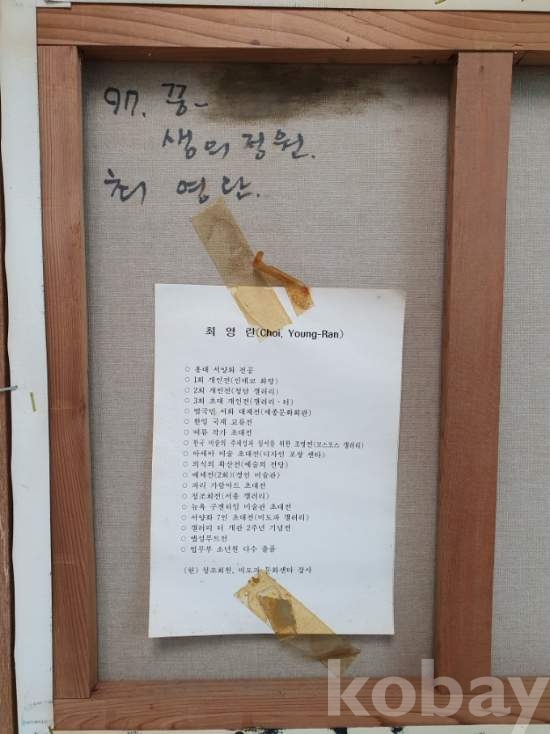 97. 꿈-
생의 정원.
최 영 란.
최 영 란(Choi, Young-Ran)
○ 홍대 서양화 전공
○ 1회 개인전(인데코 화랑)
○ 2회 개인전(청담 갤러리)
○ 3회 초대 개인전(갤러리 · 터)
○ 범국민, 서화 대제전(세종문화회관)
○ 한일 국제 교류전
○ 여류 작가 초대전
○ 한국 미술의 주체성과 질서를 위한 조명전(코스모스 갤러리)
○ 아세아 미술 초대전(디자인 포장 센타)
○ 의식의 확산전(예술의 전당)
○ 예예전(2회)(경인 미술관)
○ 파리 가람아드 초대전
○ 청조회전(서울 갤러리)
○ 뉴욕 구겐하임 미술관 초대전
○ 서양화 7인 초대전(미도파 갤러리)
○ 갤러리 터 개관 2주년 기념전
○ 앙데팡당전
○ 법무부 소년원 다수 출품
(현) 청조회원, 미도파 문화센타 강사
kobay